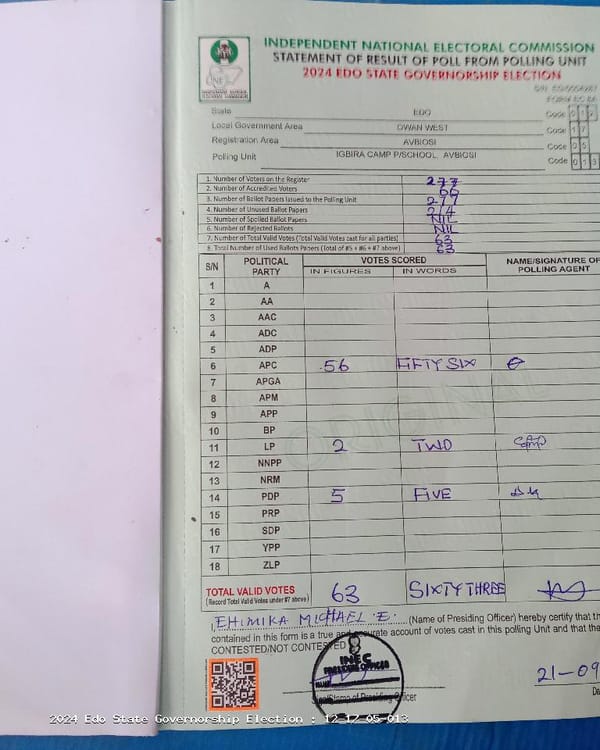 INDEPENDENT NATIONAL ELECTORAL COMMISSION
STATEMENT OF RESULT OF POLL FROM POLLING UNIT
2024 EDO STATE GOVERNORSHIP ELECTION
State EDO Code
Local Government Area OWAN WEST Code 17
Registration Area AVBIOSI Code 05
Polling Unit IGBIRA CAMP P/SCHOOL, AVBIOSI Code 013
1. Number of Voters on the Register 277
2. Number of Accredited Voters 66
3. Number of Ballot Papers Issued to the Polling Unit 277
4. Number of Unused Ballot Papers 214
5. Number of Spoiled Ballot Papers NIL
6. Number of Rejected Ballots NIL
7. Number of Total Valid Votes (Total Valid Votes cast for all parties) 63
8. Total Number of Used Ballots Papers (Total of #5 + #6 + #7 above) 63
S/N POLITICAL PARTY VOTES SCORED NAME/SIGNATURE OF POLLING AGENT
IN FIGURES IN WORDS
1 A
2 AA
3 AAC
4 ADC
5 ADP
6 APC 56 FIFTY SIX
7 APGA
8 APM
9 APP
10 BP
11 LP 2 TWO
12 NNPP
13 NRM
14 PDP 5 FIVE
15 PRP
16 SDP
17 YPP
18 ZLP
TOTAL VALID VOTES 63 SIXTY THREE
(Record Total Valid Votes under #7 above)
I, EHIMIKA MICHAEL E. (Name of Presiding Officer) hereby certify that the
contained in this form is a true and accurate account of votes cast in this polling Unit and that the
CONTESTED/NOT CONTESTED
INEC
PRESIDING OFFICER
21-09
Presiding Officer
2024 Edo State Governorship Election : 12-17-05-013